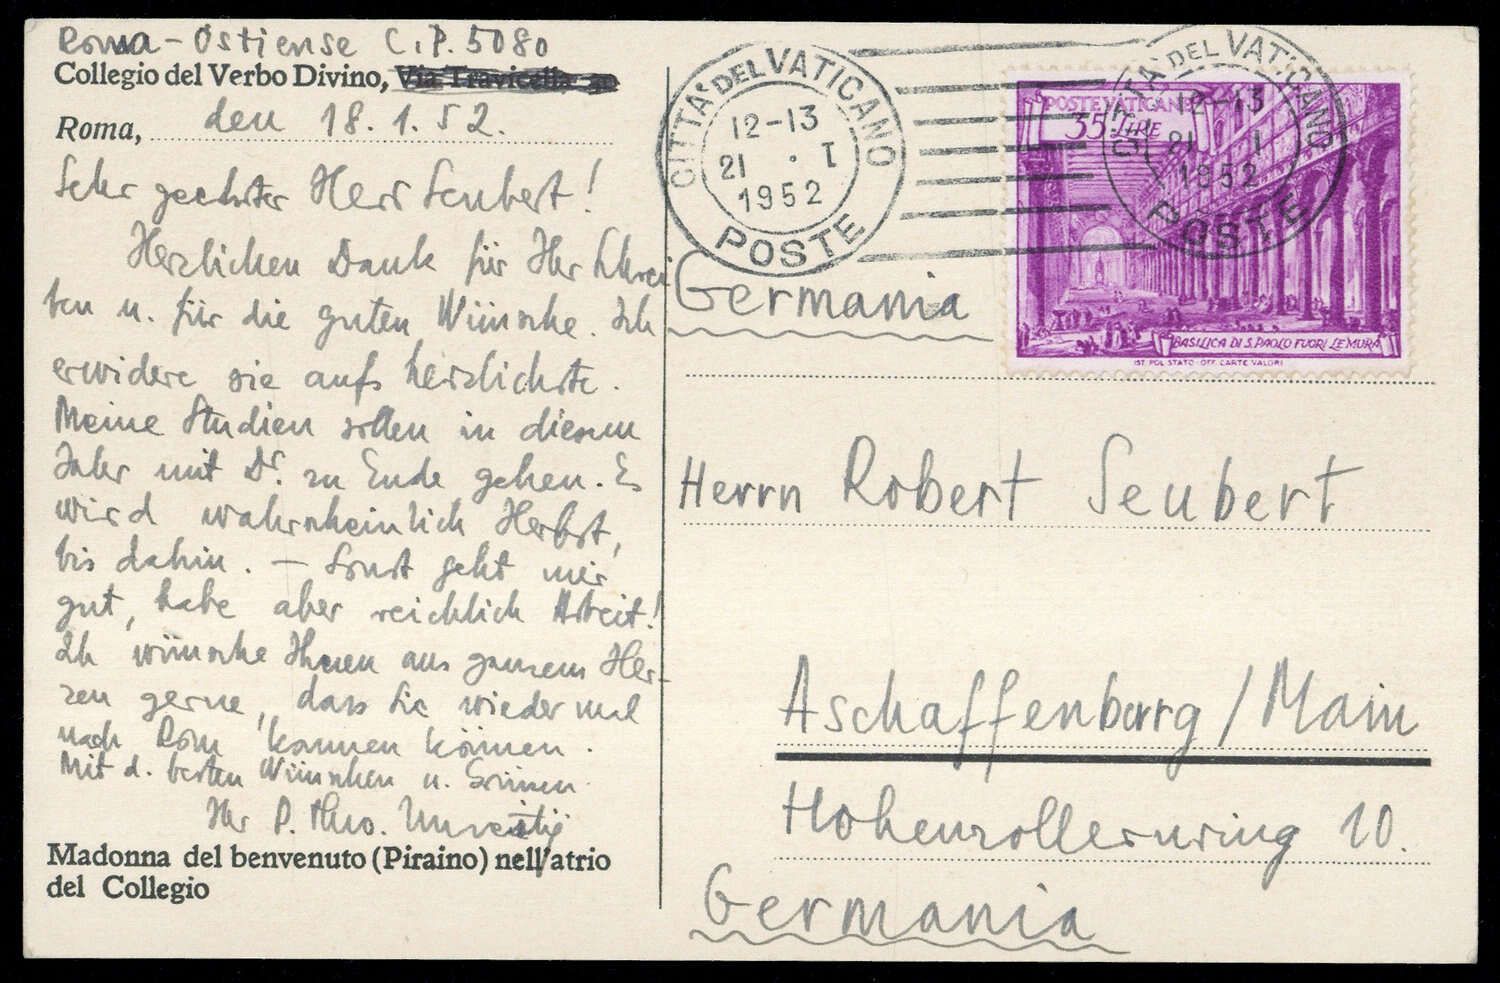 Roma - Ostiense C.P. 5080
Collegio del Verbo Divino, Via Travicella,
Roma, den 18.1.52.
Sehr geehrter Herr Seubert!
Herzlichen Dank für Ihr Schrei
ben u. für die guten Wünsche. Ich
erwidere sie aufs herzlichste.
Meine Studien sollen in diesem
Jahr mit Dr. zu Ende gehen. Es
wird wahrscheinlich Herbst,
bis dahin. — Sonst geht mir
gut, habe aber reichlich Arbeit!
Ich wünsche Ihnen aus ganzem Her-
zen gerne, dass Sie wieder mal
nach Rom kommen können.
Mit d. besten Wünschen u. Grüssen
Ihr P. Theo.
Madonna del benvenuto (Piraino) nell'atrio
del Collegio
CITTA' DEL VATICANO
12-13
21 . I
1952
POSTE
CITTA' DEL VATICANO
12-13
21 . I
1952
POSTE
POSTE VATICANE
35 LIRE
BASILICA DI S. PAOLO FUORI LE MURA
IST. POL. STATO - OFF. CARTE VALORI
Germania
Herrn Robert Seubert
Aschaffenburg/Main
Hohenzollernring 10.
Germania